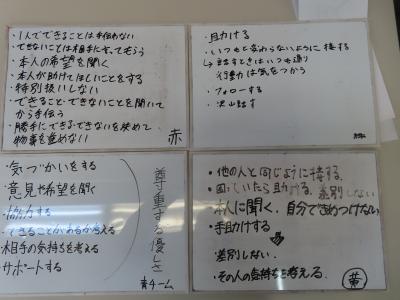 ・1人でできることは手伝わない
・できないことは相手にやってもらう
・本人の希望を聞く
・本人が助けてほしいことをする
・特別扱いしない
・できること・できないことを聞いて
から手伝う
・勝手にできる・できないを決めて
物事を進めない
赤
・手助けする
・いつもと変わらないように接する
↳話すときはいつも通り
行動は気をつかう
・フォローする
・沢山話す
・気づかいをする
・意見や希望を聞く
・協力する
・できることがあるか考える
・相手の気持ちを考える
・サポートする
尊重する優しさ
青チーム
・他の人と同じように接する。
・困っていたら助ける。差別しない
・本人に聞く。自分できめつけない
・手助けする
差別しない。
・その人の気持ちを考える。
黄